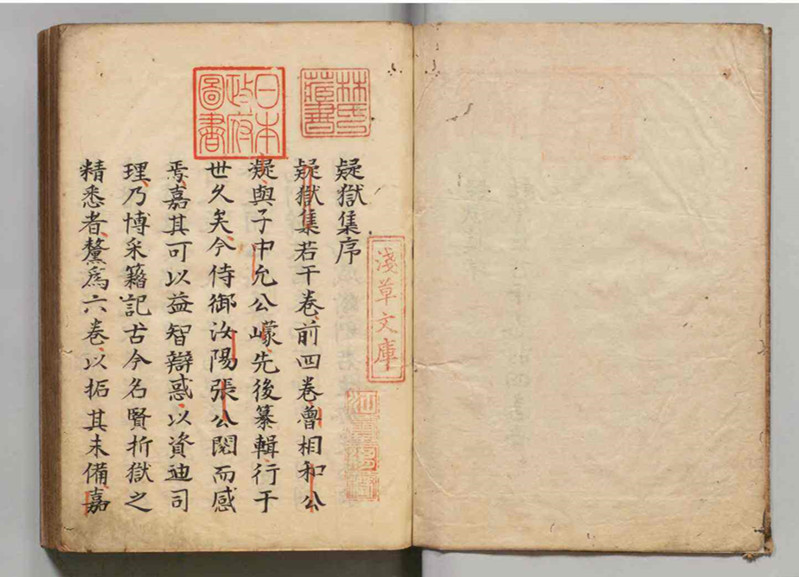 林氏
藏書
日本
政府
圖書
淺草文庫
江雲渭樹
疑獄集序
疑獄集若干卷前四卷魯相和公
凝與子中允公㠓先後纂輯行于
世久矣今侍御汝陽張公閱而感
焉嘉其可以益智辯惑以資迪司
理乃博采籍記古今名賢折獄之
精悉者釐爲六卷以拓其未備嘉